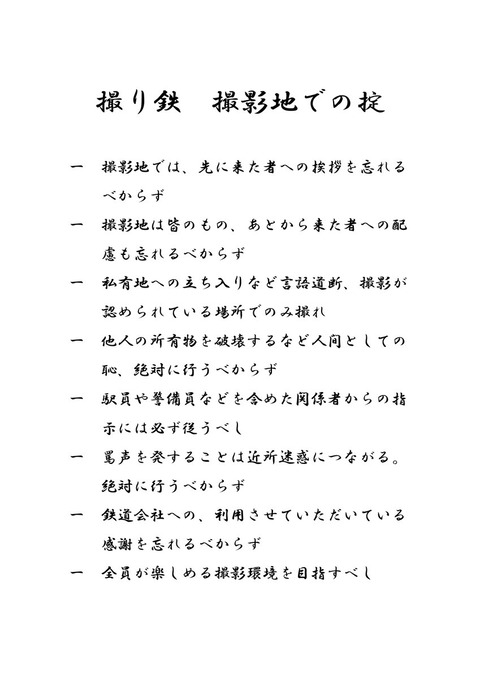 撮り鉄　撮影地での掟
一　撮影地では、先に来た者への挨拶を忘れる
べからず
一　撮影地は皆のもの、あとから来た者への配
慮も忘れるべからず
一　私有地への立ち入りなど言語道断、撮影が
認められている場所でのみ撮れ
一　他人の所有物を破壊するなど人間としての
恥、絶対に行うべからず
一　駅員や警備員などを含めた関係者からの指
示には必ず従うべし
一　罵声を発することは近所迷惑につながる。
絶対に行うべからず
一　鉄道会社への、利用させていただいている
感謝を忘れるべからず
一　全員が楽しめる撮影環境を目指すべし